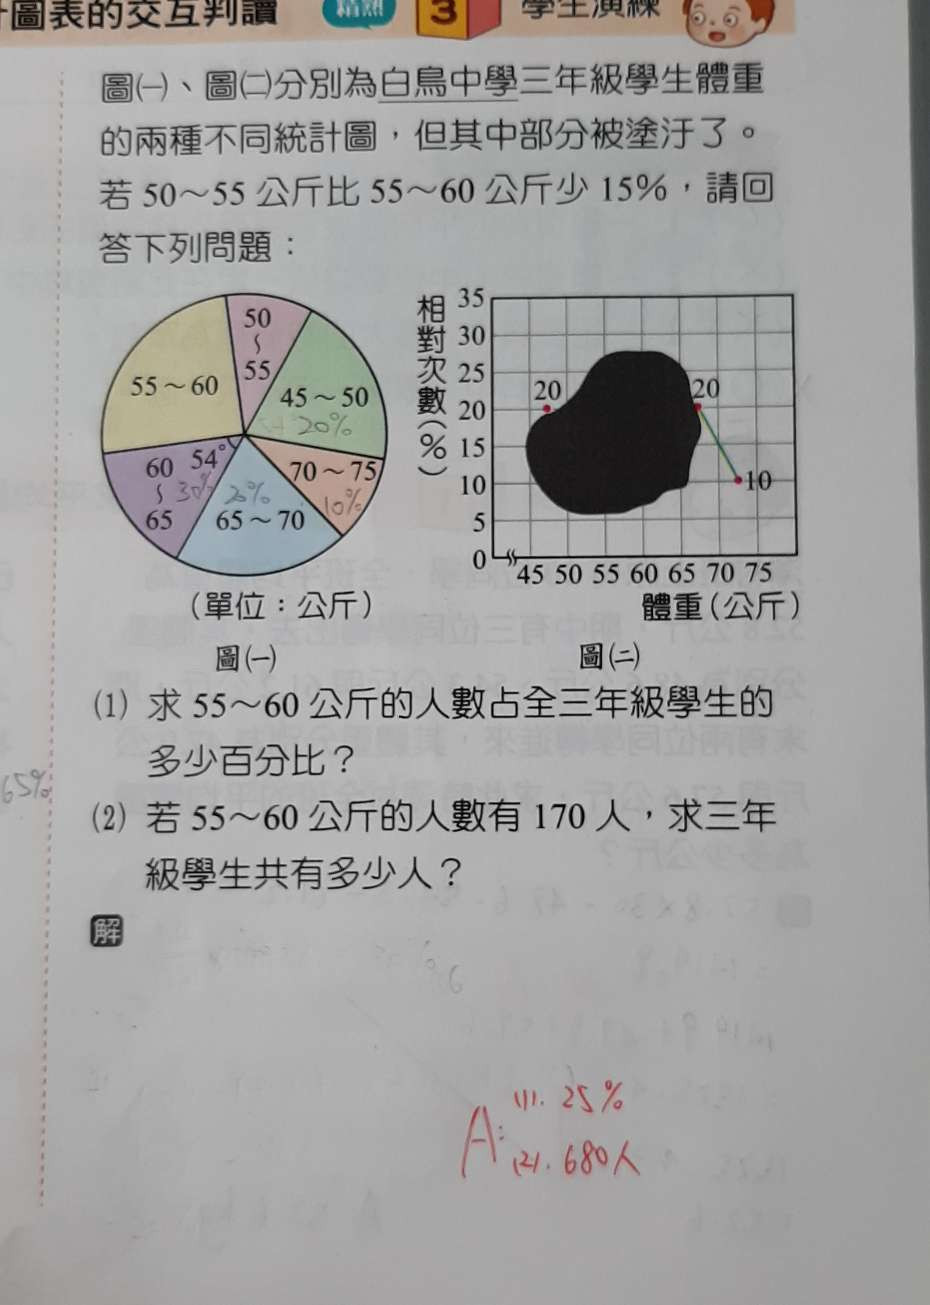 圖表的交互判讀 精熟 3 學生演練
圖㈠、圖㈡分別為白鳥中學三年級學生體重
的兩種不同統計圖，但其中部分被塗汙了。
若 50～55 公斤比 55～60 公斤少 15%，請回
答下列問題：
50～55
45～50
20%
55～60
60～65
54°
30%
20%
65～70
70～75
10%
(單位：公斤)
圖㈠
相對次數(%)
35
30
25
20
15
10
5
0
20
20
10
45 50 55 60 65 70 75
體重(公斤)
圖㈡
⑴ 求 55～60 公斤的人數占全三年級學生的
多少百分比？
65%
⑵ 若 55～60 公斤的人數有 170 人，求三年
級學生共有多少人？
解
A: (1). 25%
(2). 680人